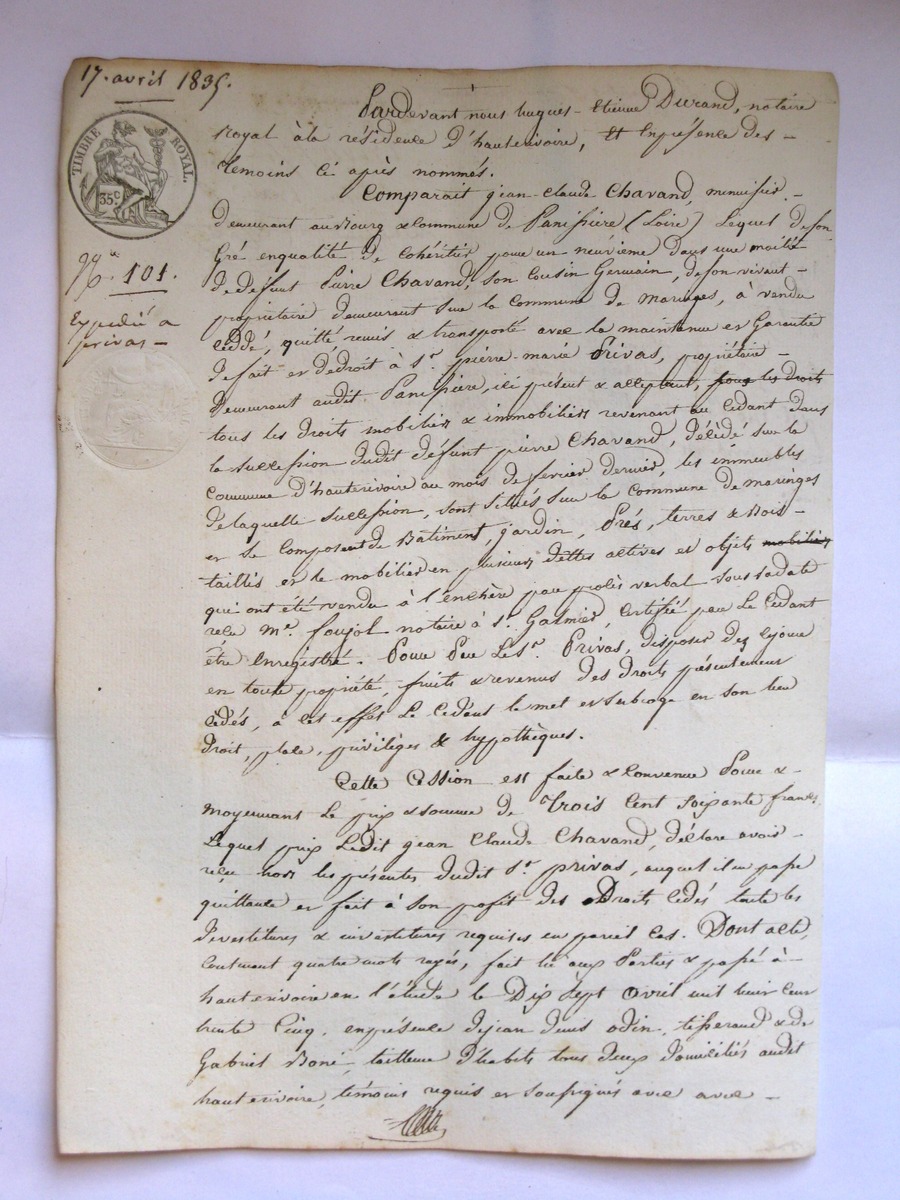 17. avril 1835.
TIMBRE ROYAL.
35c
No. 101.
Expédié a
privas —
Pardevant nous hugues-Etienne Durand, notaire
Royal à la résidence d'hauterivoire, Et En présence des —
témoins Ci après nommés.
Comparait jean-Claude Chavand, menuisier —
demeurant au Bourg & Commune de Panissière (Loire) Lequel de son
Gré en qualité de Cohéritier pour un neuvième dans une moitié
de défunt Pierre Chavand, son Cousin Germain, de son vivant —
propriétaire demeurant sur la Commune de maringes, à vendu
Cédé, quitté, remis & transporté avec la maintenue et Garantie
de fait et de droit à Sr. pierre-marie Privas, propriétaire —
demeurant audit Panissière, ici présent & acceptant, tous les droits
tous les droits mobiliers & immobiliers revenant au Cédant dans
la succession dudit défunt pierre Chavand, décédé sur la
Commune d'hauterivoire au mois de fevrier dernier, les immeubles
de laquelle succession, sont situés sur la Commune de maringes
et se Composent de Batiment, jardin, Prés, terres & Bois —
taillis et le mobilier en plusieurs dettes actives et objets mobiliers
qui ont été vendu à l'enchère par procès verbal sous sa date
reçu me. foujol notaire à St. Galmier, Certifié par Le Cédant
être Enregistré. Pour Par Le Sr. Privas, disposer dez ce jour
en toute propriété, fruits & revenus des droits présentement
Cédés, à Cet effet Le Cédant le met et subroge en son lieu
droit, place, privilèges & hypothèques.
Cette Cession est faite & Convenue Pour &
moyennant Le prix & somme de Trois Cent soixante francs
Lequel prix Ledit jean Claude Chavand, déclare avoir —
reçu hors les présentes dudit Sr. privas, auquel il en passe
quittance et fait à son profit des Droits Cédés toute les
devestitures & investitures requises en pareil Cas. Dont acte,
Contenant quatre mots rayés, fait lu aux Parties & passé à —
hauterivoire en l'étude le Dix Sept Avril mil huit Cent
trente Cinq. en présence de jean denis odin, tisserand & de
Gabriel Boné, tailleur d'habits tous deux domiciliés audit
hauterivoire, témoins requis et soussignés avec avec —